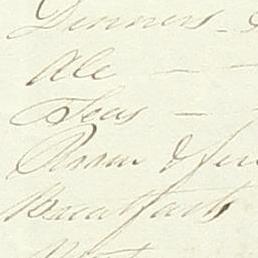 Dinners -
Ale — —
Teas —
Room & fire
Breakfasts